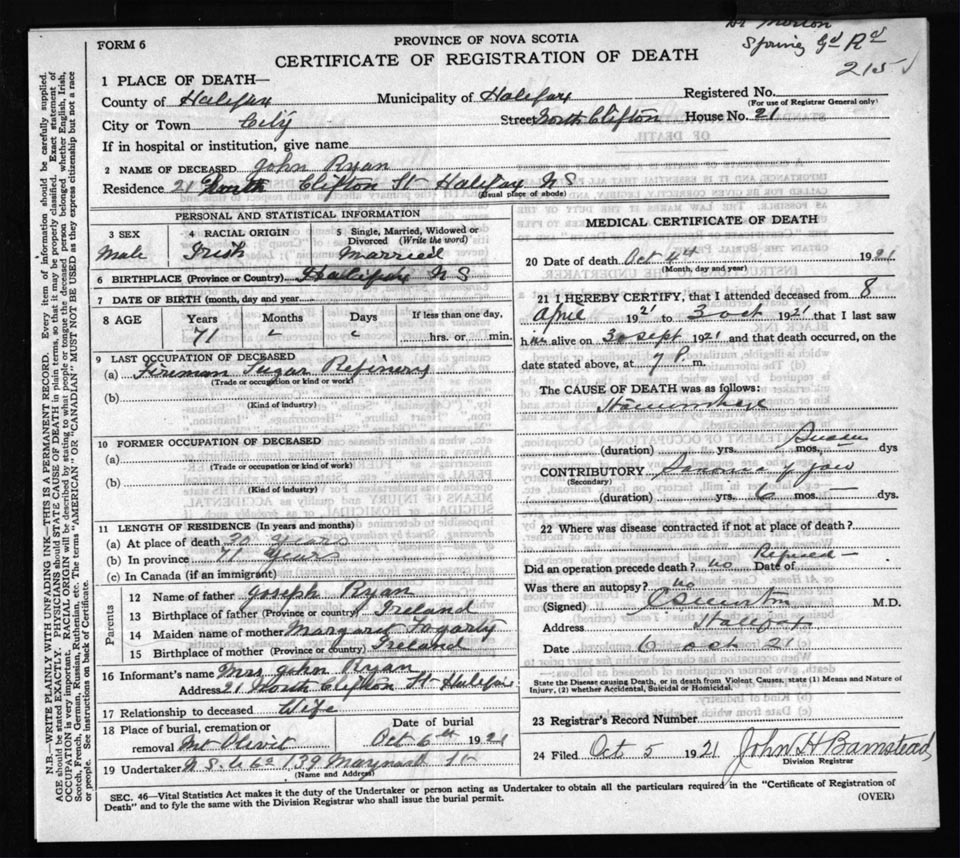 Dr Morton
Spring Gd Rd
215
FORM 6
PROVINCE OF NOVA SCOTIA
CERTIFICATE OF REGISTRATION OF DEATH
1 PLACE OF DEATH—
County of Halifax Municipality of Halifax Registered No.
(For use of Registrar General only)
City or Town City Street North Clifton House No. 21
If in hospital or institution, give name
2 NAME OF DECEASED John Ryan
Residence 21 North Clifton St Halifax N S
(Usual place of abode)
PERSONAL AND STATISTICAL INFORMATION
3 SEX 4 RACIAL ORIGIN 5 Single, Married, Widowed or Divorced (Write the word)
Male Irish Married
6 BIRTHPLACE (Province or Country) Halifax N S
7 DATE OF BIRTH (month, day and year)
8 AGE Years Months Days If less than one day,
71 hrs. or min.
9 LAST OCCUPATION OF DECEASED
(a) Fireman Sugar Refinery
(Trade or occupation or kind or work)
(b)
(Kind of industry)
10 FORMER OCCUPATION OF DECEASED
(a)
(Trade or occupation or kind of work)
(b)
(Kind of industry)
11 LENGTH OF RESIDENCE (In years and months)
(a) At place of death 20 years
(b) In province 71 years
(c) In Canada (if an immigrant)
Parents
12 Name of father Joseph Ryan
13 Birthplace of father (Province or country) Ireland
14 Maiden name of mother Margaret Fogarty
15 Birthplace of mother (Province or country) Ireland
16 Informant's name Mrs John Ryan
Address 21 North Clifton St Halifax
17 Relationship to deceased Wife
18 Place of burial, cremation or removal Mt Olivit
Date of burial
Oct 6th 1921
19 Undertaker N S U Co 139 Maynard St
(Name and Address)
MEDICAL CERTIFICATE OF DEATH
20 Date of death Oct 4th 1921
(Month, day and year)
21 I HEREBY CERTIFY, that I attended deceased from 8
April 1921 to 3 oct 1921 that I last saw
him alive on 30 sept 1921 and that death occurred, on the
date stated above, at 7 P. m.
The CAUSE OF DEATH was as follows:
Haemorrhage
(duration) yrs. mos. dys
CONTRIBUTORY Sarcoma of jaw
(Secondary)
(duration) yrs. 6 mos. — dys.
22 Where was disease contracted if not at place of death?
Refused —
Did an operation precede death? no Date of
Was there an autopsy? no
(Signed) M.D.
Address Halifax
Date 6 oct 21
State the Disease causing Death, or in death from Violent Causes, state (1) Means and Nature of
Injury, (2) whether Accidental, Suicidal or Homicidal.
23 Registrar's Record Number
24 Filed Oct 5 1921 John H Barnstead
Division Registrar
SEC. 46—Vital Statistics Act makes it the duty of the Undertaker or person acting as Undertaker to obtain all the particulars required in the "Certificate of Registration of
Death" and to fyle the same with the Division Registrar who shall issue the burial permit.
(OVER)
N.B.—WRITE PLAINLY WITH UNFADING INK—THIS IS A PERMANENT RECORD. Every item of information should be carefully supplied.
AGE should be stated EXACTLY. PHYSICIANS should STATE CAUSE OF DEATH in plain terms, so that it may be properly classified. Exact statement of
OCCUPATION is very important. RACIAL ORIGIN will be described by stating to what people or tongue the deceased person belonged whether English, Irish,
Scotch, French, German, Russian, Ruthenian, etc. The terms "AMERICAN" OR "CANADIAN" MUST NOT BE USED as they express citizenship but not a race
or people. See instructions on back of Certificate.